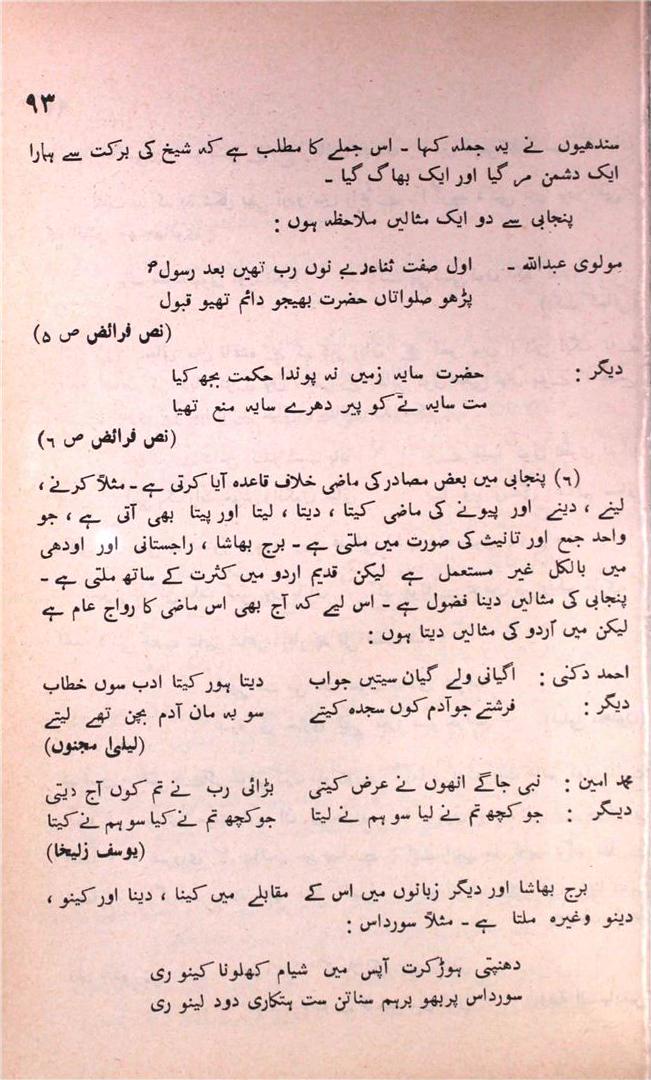 ۹۳
سندھیوں نے یہ جملہ کہا ۔ اس جملے کا مطلب ہے کہ شیخ کی برکت سے ہمارا
ایک دشمن مر گیا اور ایک بھاگ گیا ۔
پنجابی سے دو ایک مثالیں ملاحظہ ہوں :
مولوی عبداللہ ۔ اول صفت ثناء ربے نوں رب تھیں بعد رسولؐ
پڑھو صلواتاں حضرت بھیجو دائم تھیو قبول
(نص فرائض ص ۵)
دیگر : حضرت سایہ زمیں نہ پوندا حکمت بجھ کیا
مت سایہ تے کو پیر دھرے سایہ منع تھیا
(نص فرائض ص ۶)
(۶) پنجابی میں بعض مصادر کی ماضی خلاف قاعدہ آیا کرتی ہے ۔ مثلاً کرنے ،
لینے ، دینے اور پیونے کی ماضی کیتا ، دیتا ، لیتا اور پیتا بھی آتی ہے ، جو
واحد جمع اور تانیث کی صورت میں ملتی ہے ۔ برج بھاشا ، راجستانی اور اودھی
میں بالکل غیر مستعمل ہے لیکن قدیم اردو میں کثرت کے ساتھ ملتی ہے ۔
پنجابی کی مثالیں دینا فضول ہے ۔ اس لیے کہ آج بھی اس ماضی کا رواج عام ہے
لیکن میں اُردو کی مثالیں دیتا ہوں :
احمد دکنی : اگیانی ولے گیان سیتیں جواب دیتا ہور کیتا ادب سوں خطاب
دیگر : فرشتے جو آدم کوں سجدہ کیتے سو بہ مان آدم بچن تھے لیتے
(لیلیٰ مجنوں)
محمد امین : نبی جاگے انھوں نے عرض کیتی بڑائی رب نے تم کوں آج دیتی
دیگر : جو کچھ تم نے لیا سو ہم نے لیتا جو کچھ تم نے کیا سو ہم نے کیتا
(یوسف زلیخا)
برج بھاشا اور دیگر زبانوں میں اس کے مقابلے میں کینا ، دینا اور کینو ،
دینو وغیرہ ملتا ہے ۔ مثلاً سورداس :
دھنپتی ہوڑ کرت آپس میں شیام کھلونا کینو ری
سورداس پربھو برہم سناتن ست ہتکاری دود لینو ری